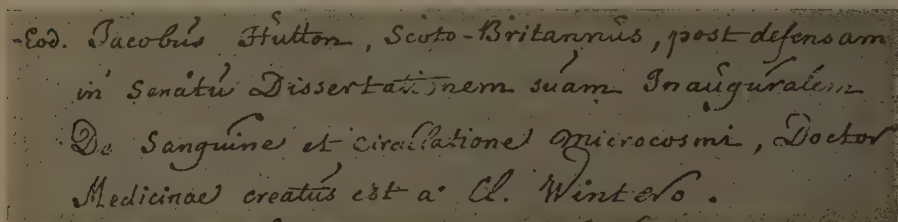 -Eod. Jacobus Hutton, Scoto-Britannus, post defensam
in Senatu Dissertationem suam Inauguralem
De Sanguine et circulatione microcosmi, Doctor
Medicinae creatus est a Cl. Wintero.